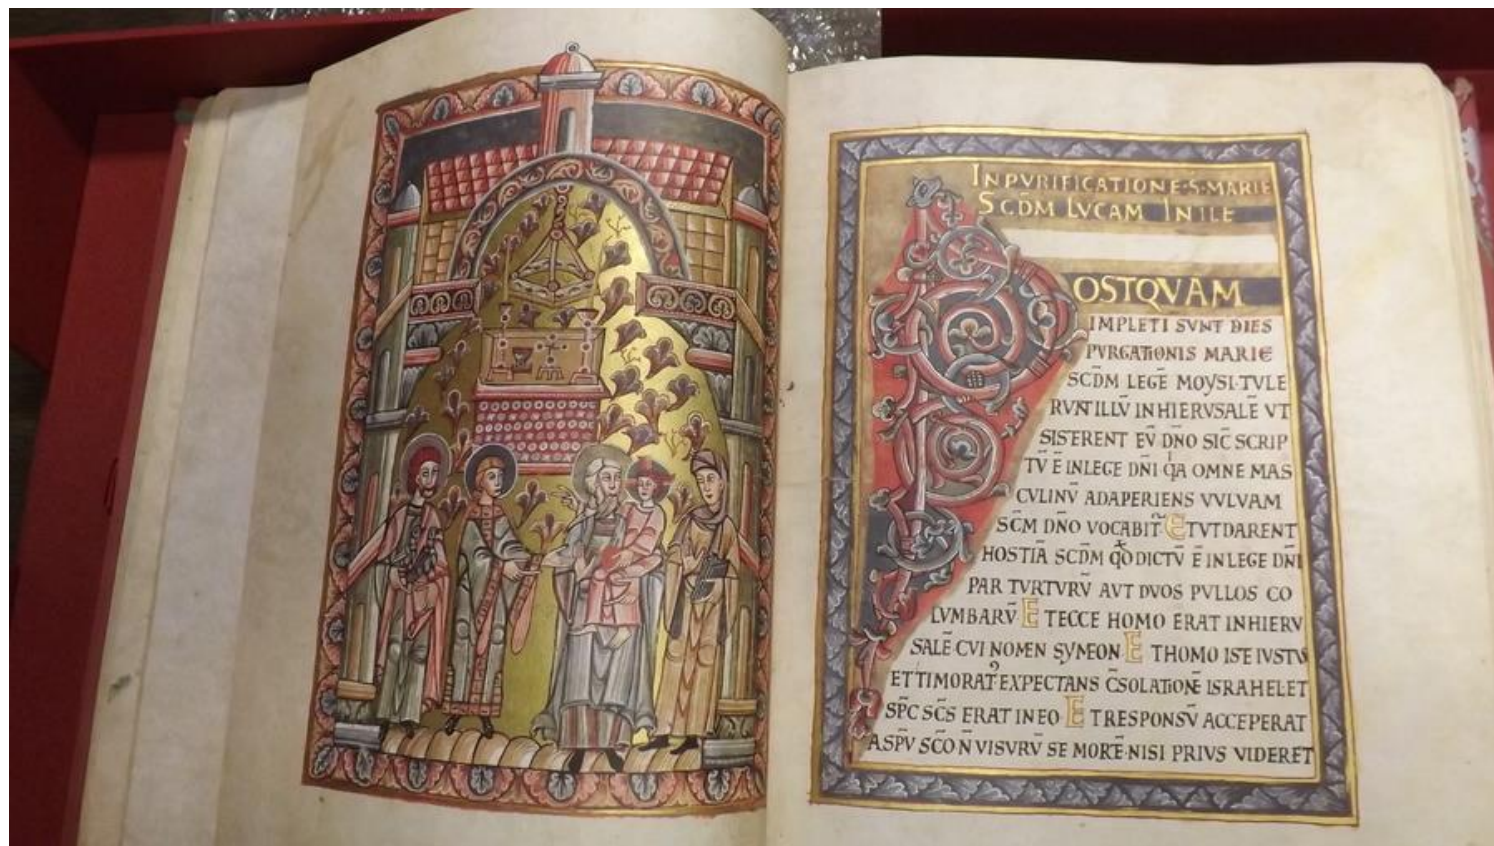 IN PVRIFICATIONE·S·MARIE
SCD̄M LVCAM IN ILE
POSTQVAM
IMPLETI SVNT DIES
PVRGATIONIS MARIE
SCD̄M LEGĒ MOYSI·TVLE
RVNT ILLV̄ IN HIERVSALĒ VT
SISTERENT EV̄ DN̄O SIC̄ SCRIP
TV̄ Ē IN LEGE DN̄I QͥA OMNE MAS
CVLINV̄ ADAPERIENS VVLVAM
SC̄M DN̄O VOCABIT̄ ET VT DARENT
HOSTIĀ SCD̄M QͦD DICTV̄ Ē IN LEGE DN̄I
PAR TVRTVRV̄ AVT DVOS PVLLOS CO
LVMBARV̄ ET ECCE HOMO ERAT IN HIERV
SALĒ CVI NOMEN SYMEON ET HOMO ISTE IVSTVS
ET TIMORATꝰ EXPECTANS C̄SOLATIONĒ ISRAHEL ET
SP̄C SC̄S ERAT IN EO ET RESPONSV̄ ACCEPERAT
A SPV̄ SC̄O N̄ VISVRV̄ SE MORTĒ·NISI PRIVS VIDERET